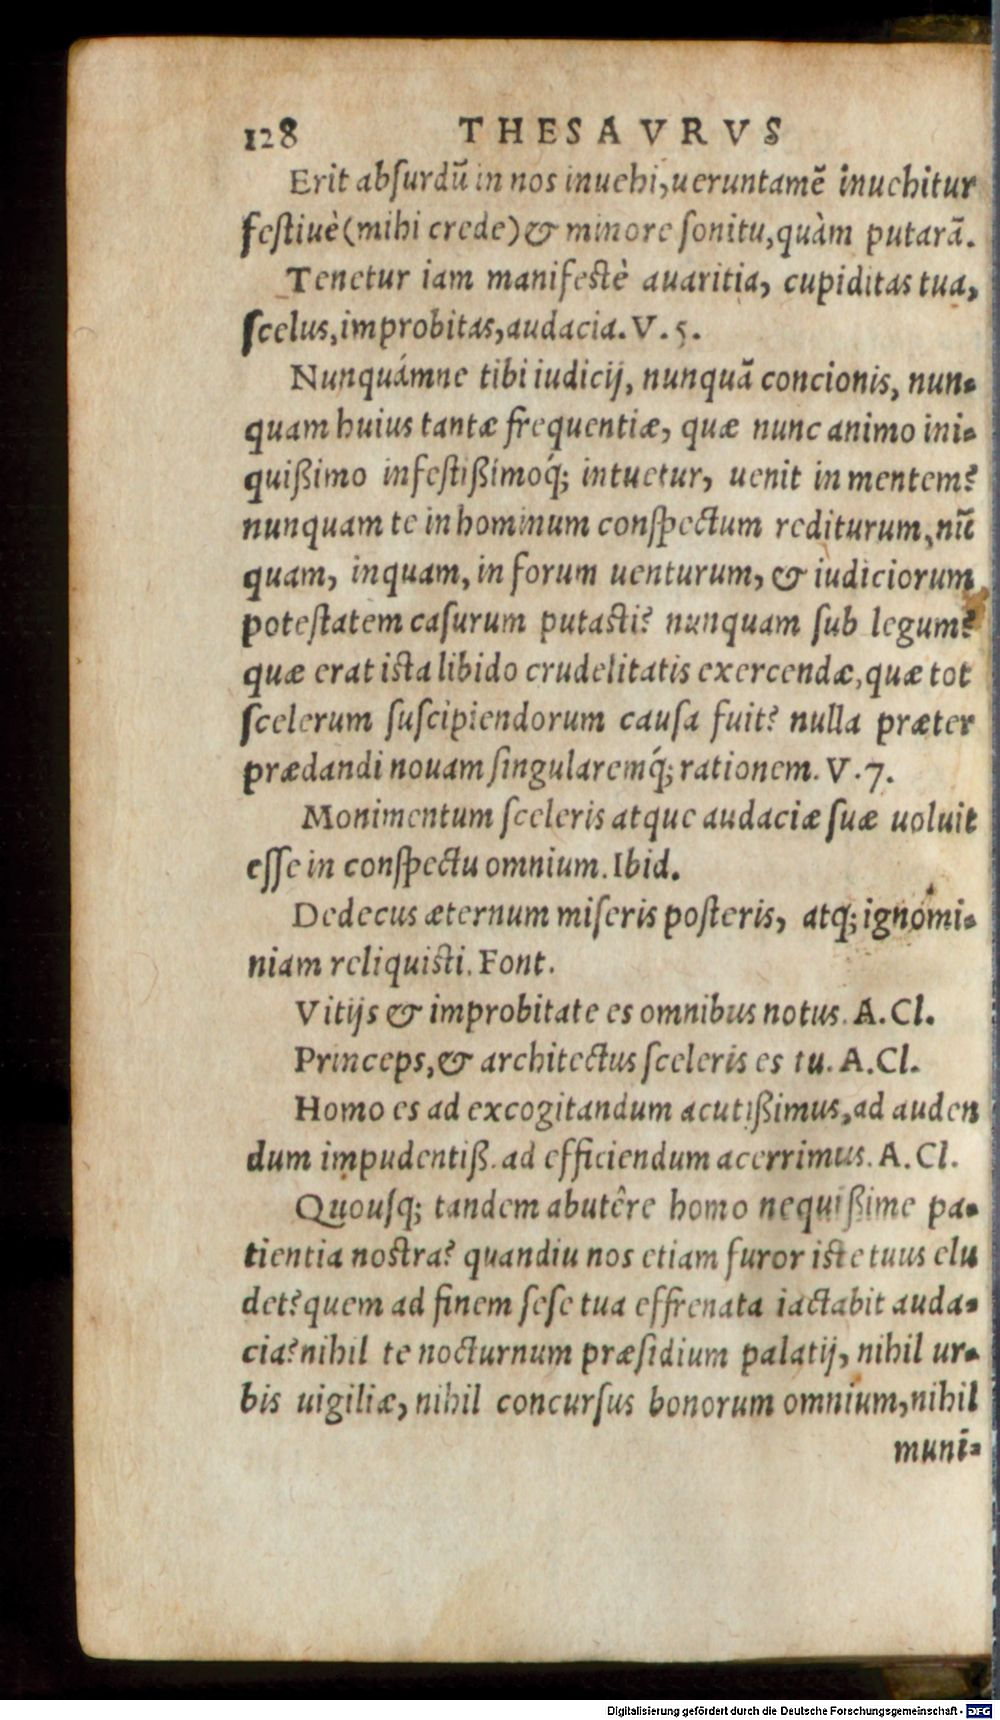 128 THESAVRVS
Erit abſurdũ in nos inuehi, ueruntamẽ inuehitur
feſtiuè (mihi crede) & minore ſonitu, quàm putarã.
Tenetur iam manifeſtè auaritia, cupiditas tua,
ſcelus, improbitas, audacia. V. 5.
Nunquámne tibi iudicij, nunquã concionis, nun-
quam huius tantæ frequentiæ, quæ nunc animo ini-
quißimo infeſtißimoq́; intuetur, uenit in mentem?
nunquam te in hominum conſpectum rediturum, nũ
quam, inquam, in forum uenturum, & iudiciorum
poteſtatem caſurum putaſti? nunquam ſub legum?
quæ erat iſta libido crudelitatis exercendæ, quæ tot
ſcelerum ſuſcipiendorum cauſa fuit? nulla præter
prædandi nouam ſingularemq́; rationem. V. 7.
Monimentum ſceleris atque audaciæ ſuæ uoluit
eſſe in conſpectu omnium. Ibid.
Dedecus æternum miſeris poſteris, atq; ignomi-
niam reliquiſti. Font.
Vitijs & improbitate es omnibus notus. A. Cl.
Princeps, & architectus ſceleris es tu. A. Cl.
Homo es ad excogitandum acutißimus, ad auden
dum impudentiß. ad efficiendum acerrimus. A. Cl.
Quouſq; tandem abutêre homo nequißime pa-
tientia noſtra? quandiu nos etiam furor iſte tuus elu
det? quem ad finem ſeſe tua effrenata iactabit auda-
cia? nihil te nocturnum præſidium palatij, nihil ur-
bis uigiliæ, nihil concurſus bonorum omnium, nihil
muni-
Digitalisierung gefördert durch die Deutsche Forschungsgemeinschaft - DFG